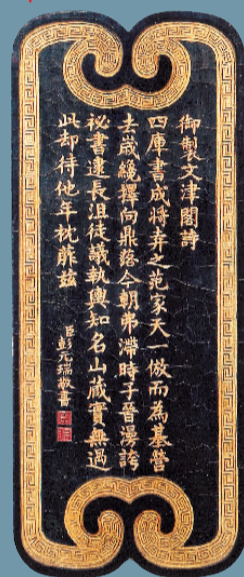 御製文津閣詩
四庫書成將弆之范家天一倣而為基營
去歲纔擇向鼎落今朝弗滯時子晉漫誇
祕書逮長沮徒議執輿知名山藏實無過
此却待他年枕𦵧茲
臣彭元瑞敬書